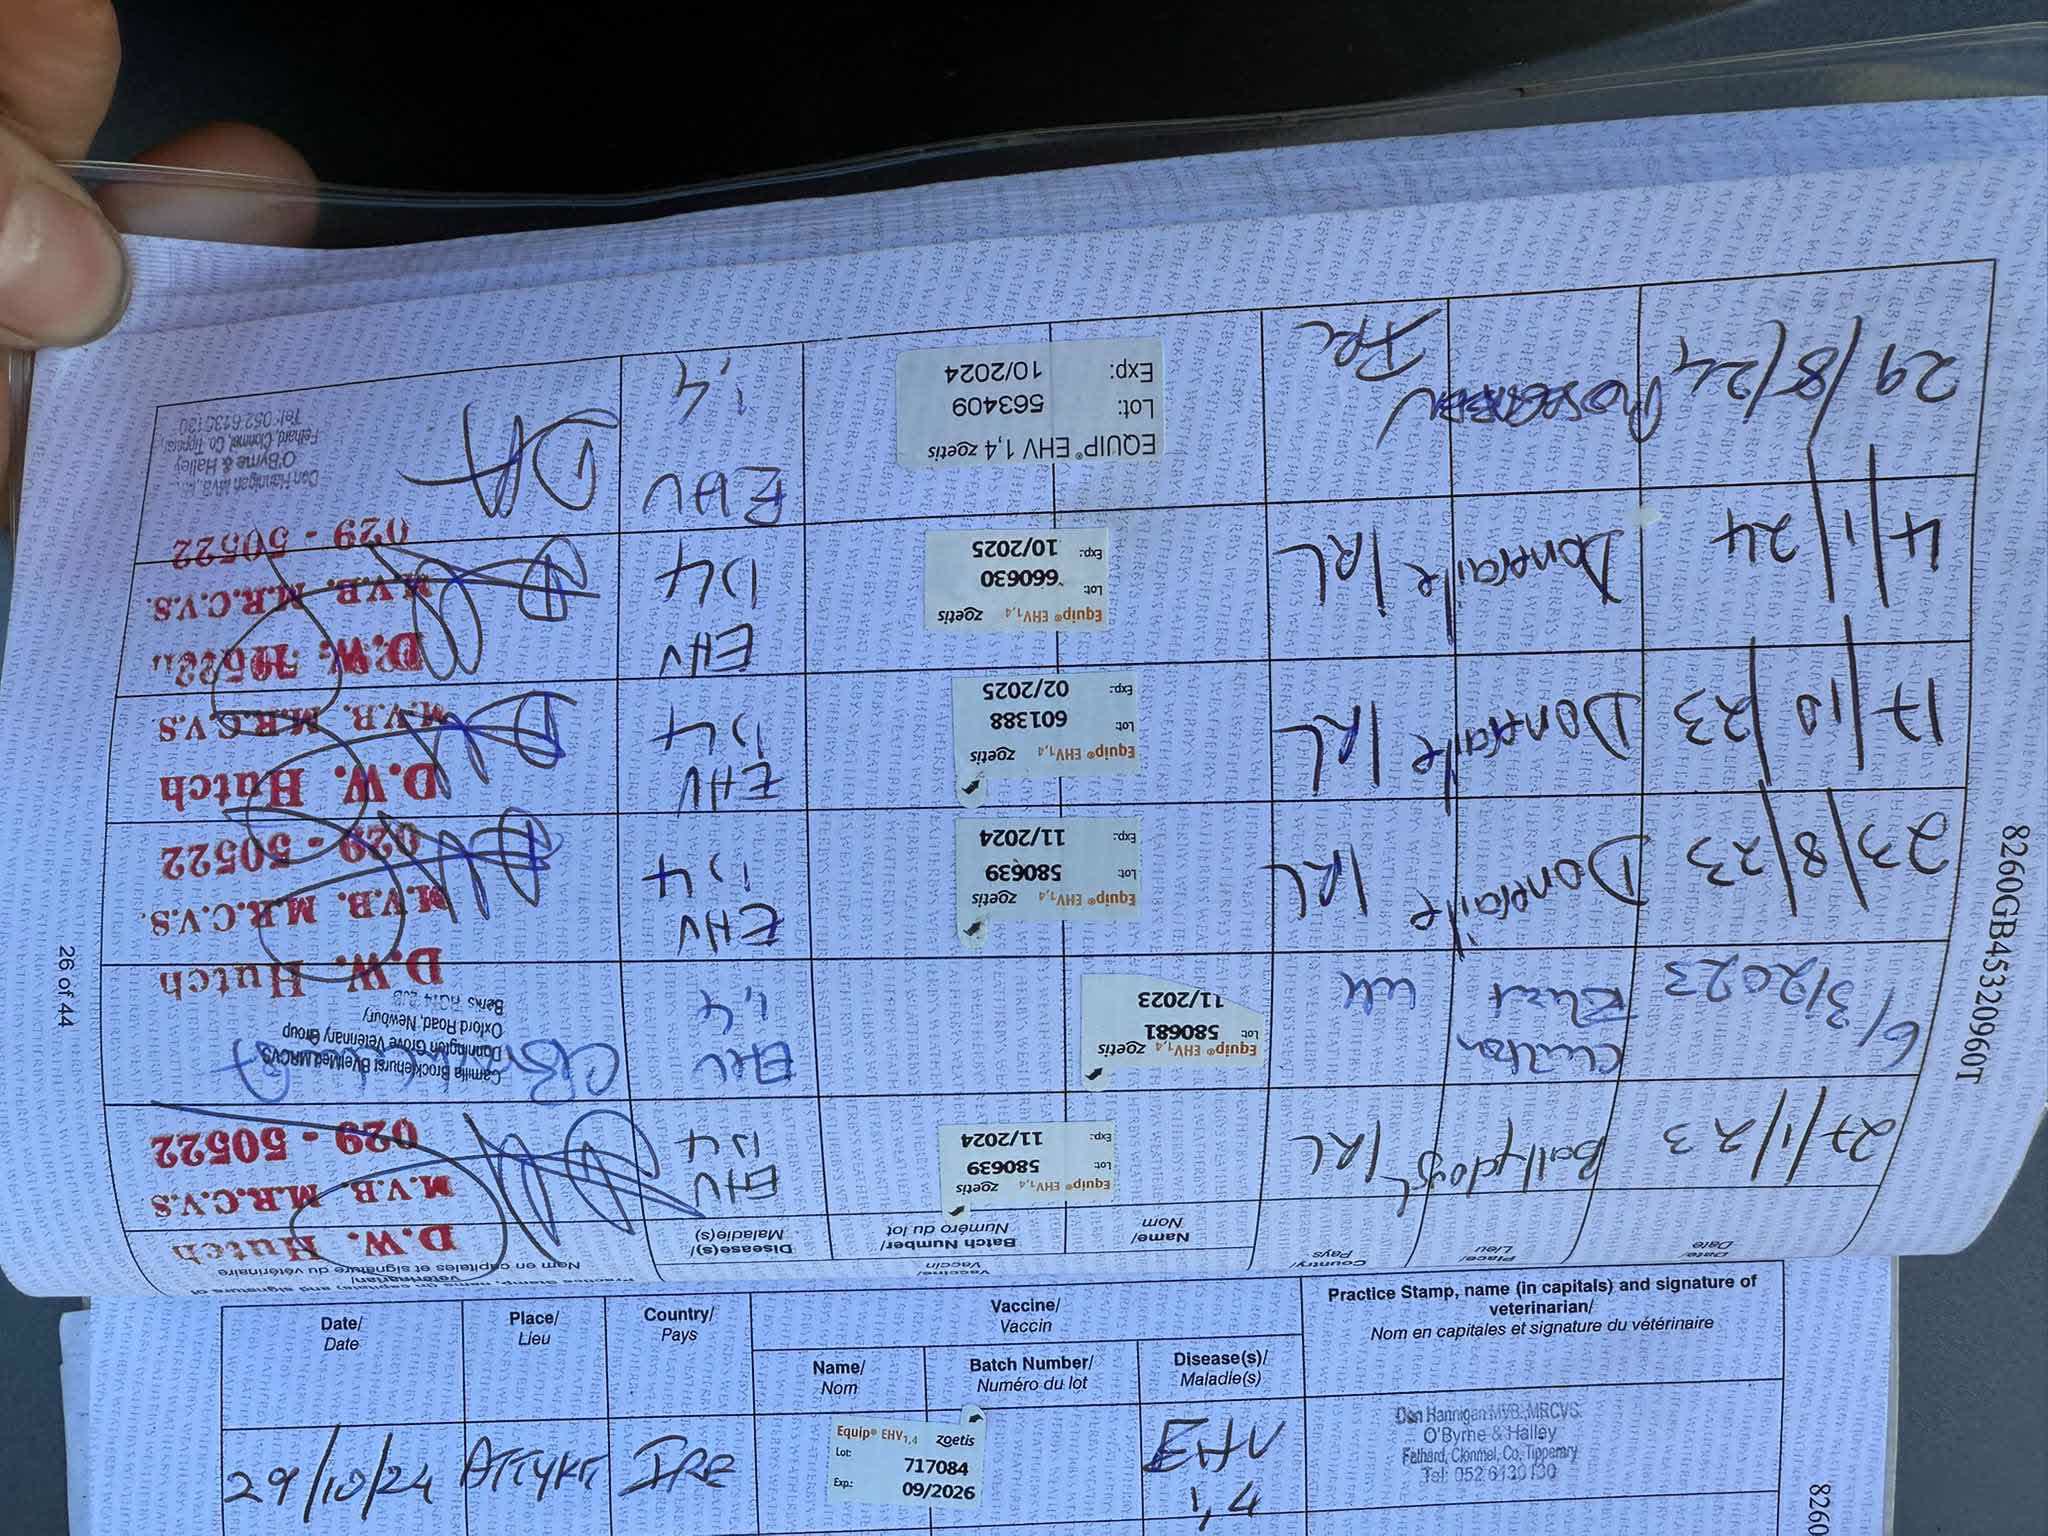 Practice Stamp, name (in capitals) and signature of
veterinarian/
Nom en capitales et signature du vétérinaire
Date/
Date
Place/
Lieu
Country/
Pays
Vaccine/
Vaccin
Name/
Nom
Batch Number/
Numéro du lot
Disease(s)/
Maladie(s)
27/1/23
IRL
Equip® EHV1,4 zoetis
Lot: 580639
Exp.: 11/2024
EHV
1,4
D.W. Hutch
M.V.B. M.R.C.V.S
029 - 50522
6/3/2023
UK
Equip® EHV1,4 zoetis
Lot: 580681
11/2023
EHV
1,4
Camilla Brocklehurst BVetMed MRCVS
Donnington Grove Veterinary Group
Oxford Road, Newbury
Berks RG14 2JB
23/8/23
Doneraile
IRL
Equip® EHV1,4 zoetis
Lot: 580639
Exp.: 11/2024
EHV
1,4
D.W. Hutch
M.V.B. M.R.C.V.S.
029 - 50522
17/10/23
Doneraile
IRL
Equip® EHV1,4 zoetis
Lot: 601388
Exp.: 02/2025
EHV
1,4
D.W. Hutch
M.V.B. M.R.C.V.S
4/1/24
Doneraile
IRL
Equip® EHV1,4 zoetis
Lot: 660630
Exp.: 10/2025
EHV
1,4
D.W.
M.V.B. M.R.C.V.S.
029 - 50522
29/8/24
EQUIP® EHV 1,4 zoetis
Lot: 563409
Exp: 10/2024
EHV
1,4
Dan Hannigan MVB.
O'Byrne & Halley
Fethard, Clonmel, Co. Tipperary
Tel: 052 6130130
26 of 44
8260GB45320960T
Date/
Date
Place/
Lieu
Country/
Pays
Vaccine/
Vaccin
Name/
Nom
Batch Number/
Numéro du lot
Disease(s)/
Maladie(s)
Practice Stamp, name (in capitals) and signature of
veterinarian/
Nom en capitales et signature du vétérinaire
29/10/24
IRE
Equip® EHV1,4 zoetis
Lot: 717084
Exp.: 09/2026
EHV
1,4
Dan Hannigan MVB., MRCVS.
O'Byrne & Halley
Fethard, Clonmel, Co. Tipperary
Tel: 052 6130130
8260